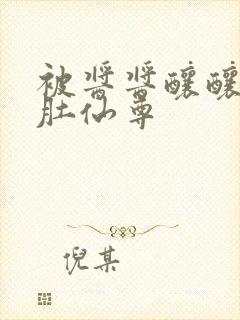 被酱酱酿酿
肚仙尊
倪某